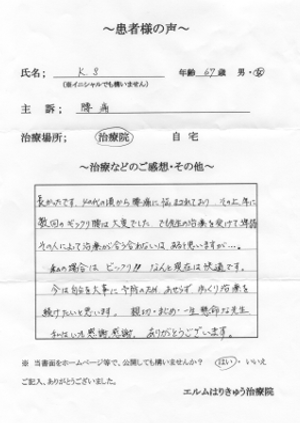 ～患者様の声～
氏名； K S 年齢 67歳 男・女
（※イニシャルでも構いません）
主 訴； 腰痛
治療場所； 治療院 自 宅
～治療などのご感想・その他～
長かったです。40代の頃から腰痛に悩まされており、その上、年に
数回のギックリ腰は大変でした。でも先生の治療を受けて
その人によって治療が合う合わないは あると思いますが…。
私の場合は ビックリ!! なんと現在は快適です。
今は自分を大事に 予防の為、あせらず、ゆっくり治療を
続けたいと思います。 親切・まじめ・一生懸命な先生
感謝、感謝。 ありがとうございます。
※ 当書面をホームページ等で、公開しても構いませんか？ はい・いいえ
ご記入、ありがとうございました。
エルムはりきゅう治療院